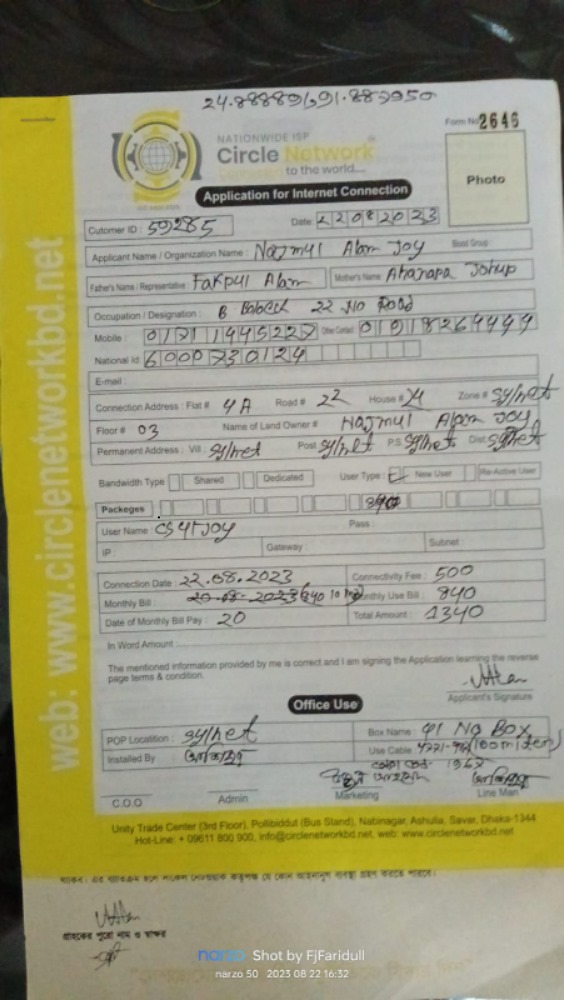 Form No 2646
NATIONWIDE ISP
Circle Network
Connected to the world....
Photo
Application for Internet Connection
Cutomer ID : 59285 Date: 22082023
Applicant Name / Organization Name : Najmul Alam Joy Blood Group :
Father's Name / Representative Fakrul Alam Mother's Name
Occupation / Designation : B Block 22 No Road
Mobile : 01711445227 Other Contact
National Id 6000730124
E-mail :
Connection Address : Flat # 4A Road # 22 House # 24 Zone # Sylhet
Floor # 03 Name of Land Owner # Najmul Alam Joy
Permanent Address : Vill : Sylhet Post Sylhet P.S Sylhet Dist Sylhet
Bandwidth Type Shared Dedicated User Type : New User Re-Active User
Packeges
User Name : Pass :
IP : Gateway : Subnet
Connection Date : 22.08.2023 Connectivity Fee : 500
Monthly Bill : Monthly Use Bill : 840
Date of Monthly Bill Pay : 20 Total Amount : 1340
In Word Amount :
The mentioned information provided by me is correct and I am signing the Application learning the reverse
page terms & condition.
Applicant's Signature
Office Use
POP Locatition : Sylhet Box Name : 41 No Box
Installed By Use Cable
C.O.O Admin Marketing Line Man
Unity Trade Center (3rd Floor), Pollibiddut (Bus Stand), Nabinagar, Ashulia, Savar, Dhaka-1344
Hot-Line: + 09611 800 900, info@circlenetworkbd.net, web: www.circlenetworkbd.net
web: www.circlenetworkbd.net
গ্রাহকের পুরো নাম ও স্বাক্ষর
narzo Shot by FjFaridull
narzo 50 2023 08 22 16:32